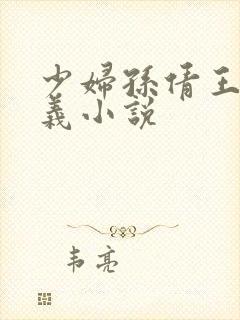 少婦孫倩王
義小說
韦亮